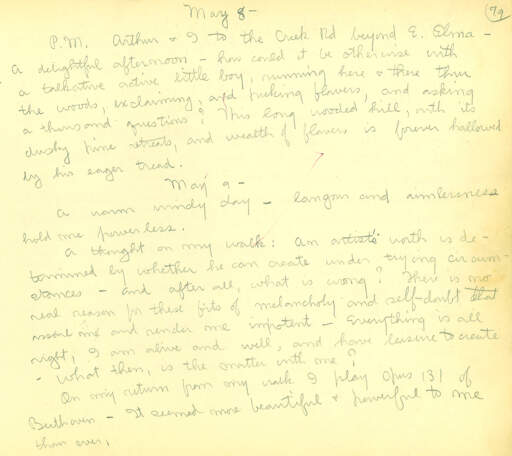 79
May 8 -
P.M. Arthur & I to the Creek Rd beyond E. Elma -
A delightful afternoon - how could it be otherwise with
a talkative active little boy, running here & there thru
the woods, exclaiming, and picking flowers, and asking
a thousand questions? This long wooded hill, with its
dusky pine retreats, and wealth of flowers is forever hallowed
by his eager tread.
May 9 -
A warm windy day - languor and aimlessness
hold me powerless.
A thought on my walk: An artist's worth is de-
termined by whether he can create under trying circum-
stances - and after all, what is wrong? There is no
real reason for these fits of melancholy and self-doubt that
assail me and render me impotent - Everything is all
right, I am alive and well, and have leisure to create
- What then, is the matter with me?
On my return from my walk I play Opus 131 of
Beethoven - It seemed more beautiful & powerful to me
than ever.